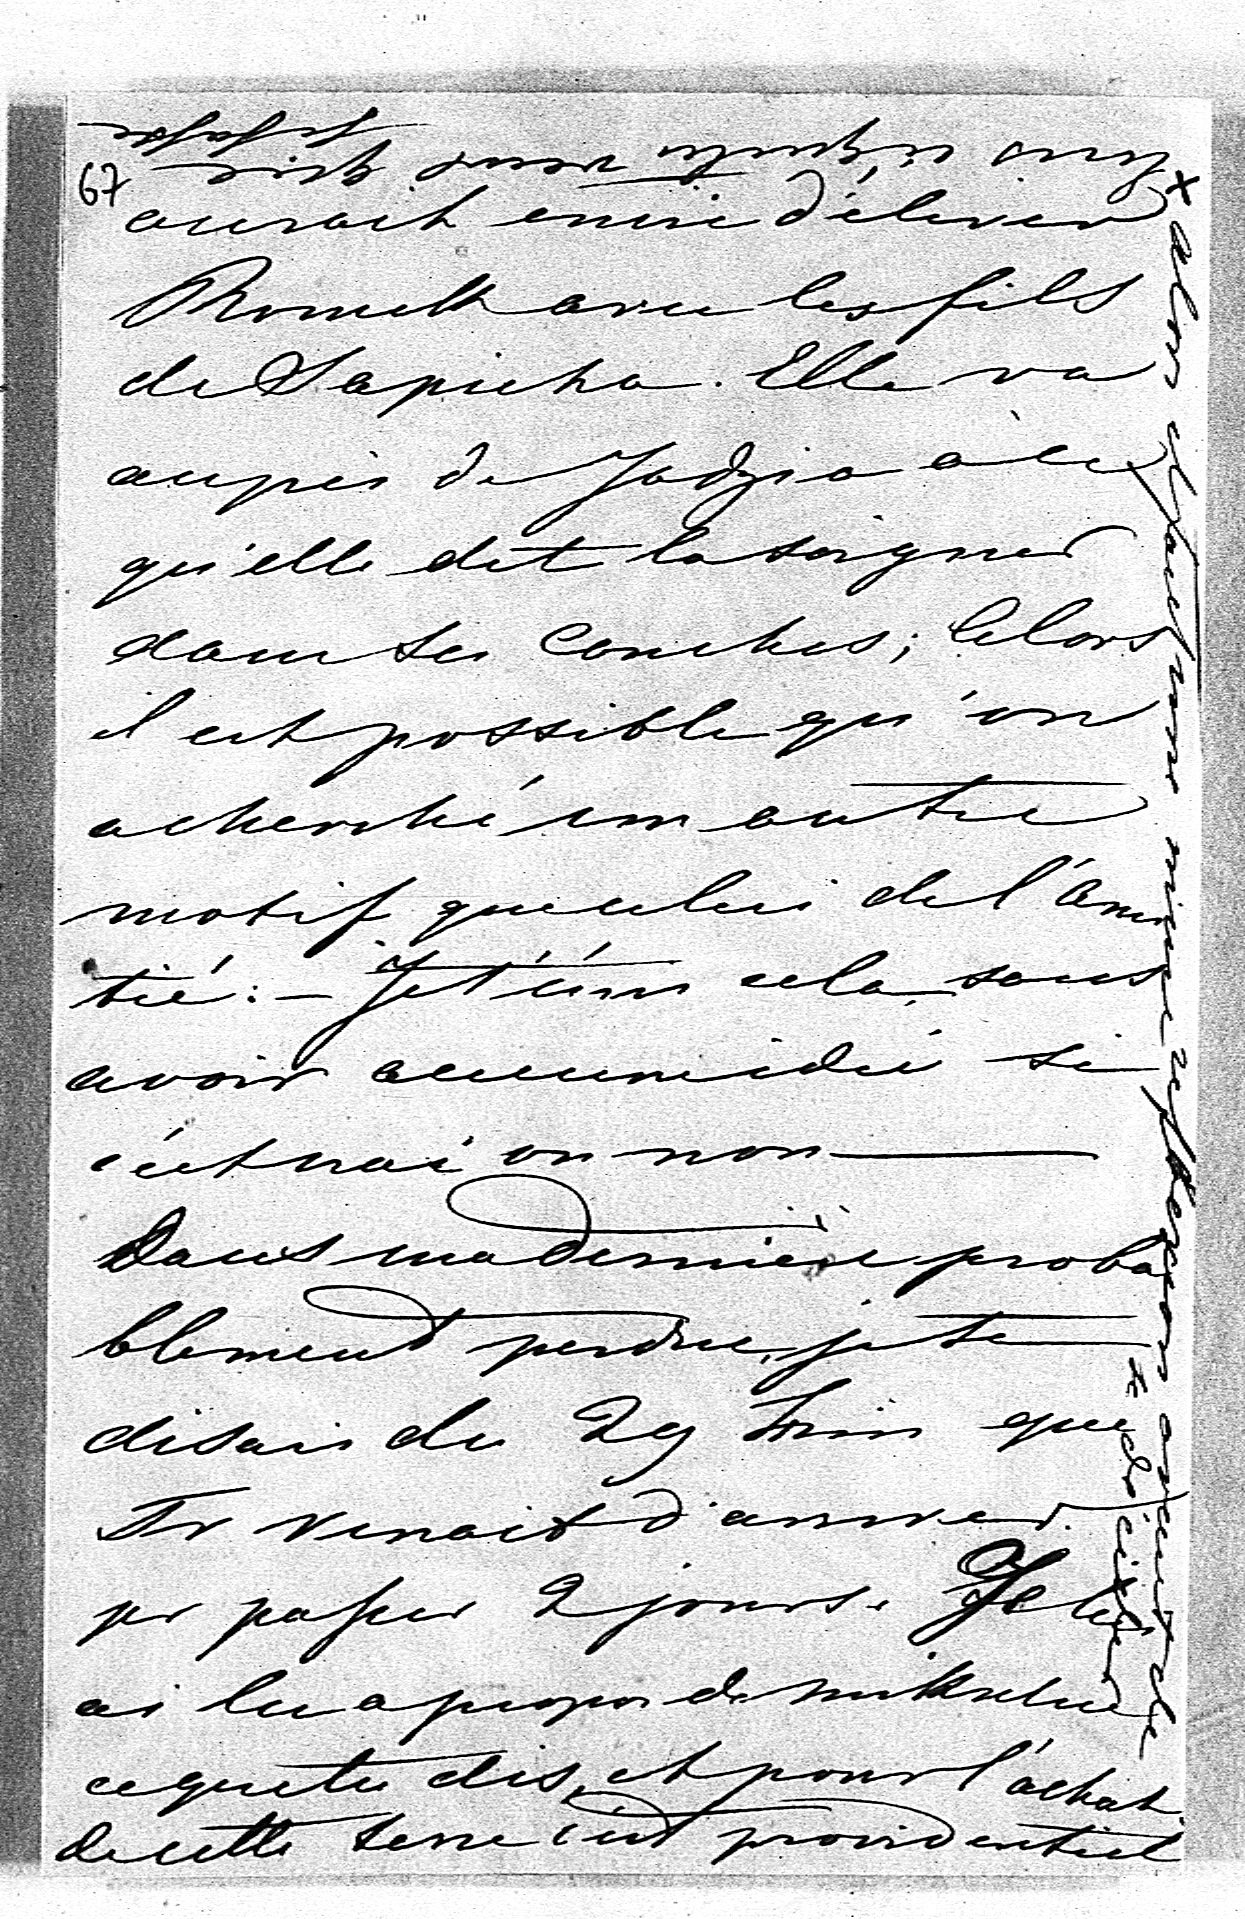 67
aurait envie d'élever
Romuald avec les fils
de Sapieha. Elle va
auprès de Jadzia à ce
qu'elle dit la soigner
dans ses couches; alors
il est possible qu'on
a cherché un autre
motif que celui de l'ami
tié. — Je t'écris cela sans
avoir aucune idée si
c'est vrai ou non —
Dans ma dernière proba
blement perdue, je te
disais du 29 Juin que
Tr venait d'arriver
pr passer 2 jours. Je lui
ai lu à propos de
ce que tu dis, et pour l'achat
de cette terre c'est providentiel
x alors il faut mûre réflexion avant de
se décider